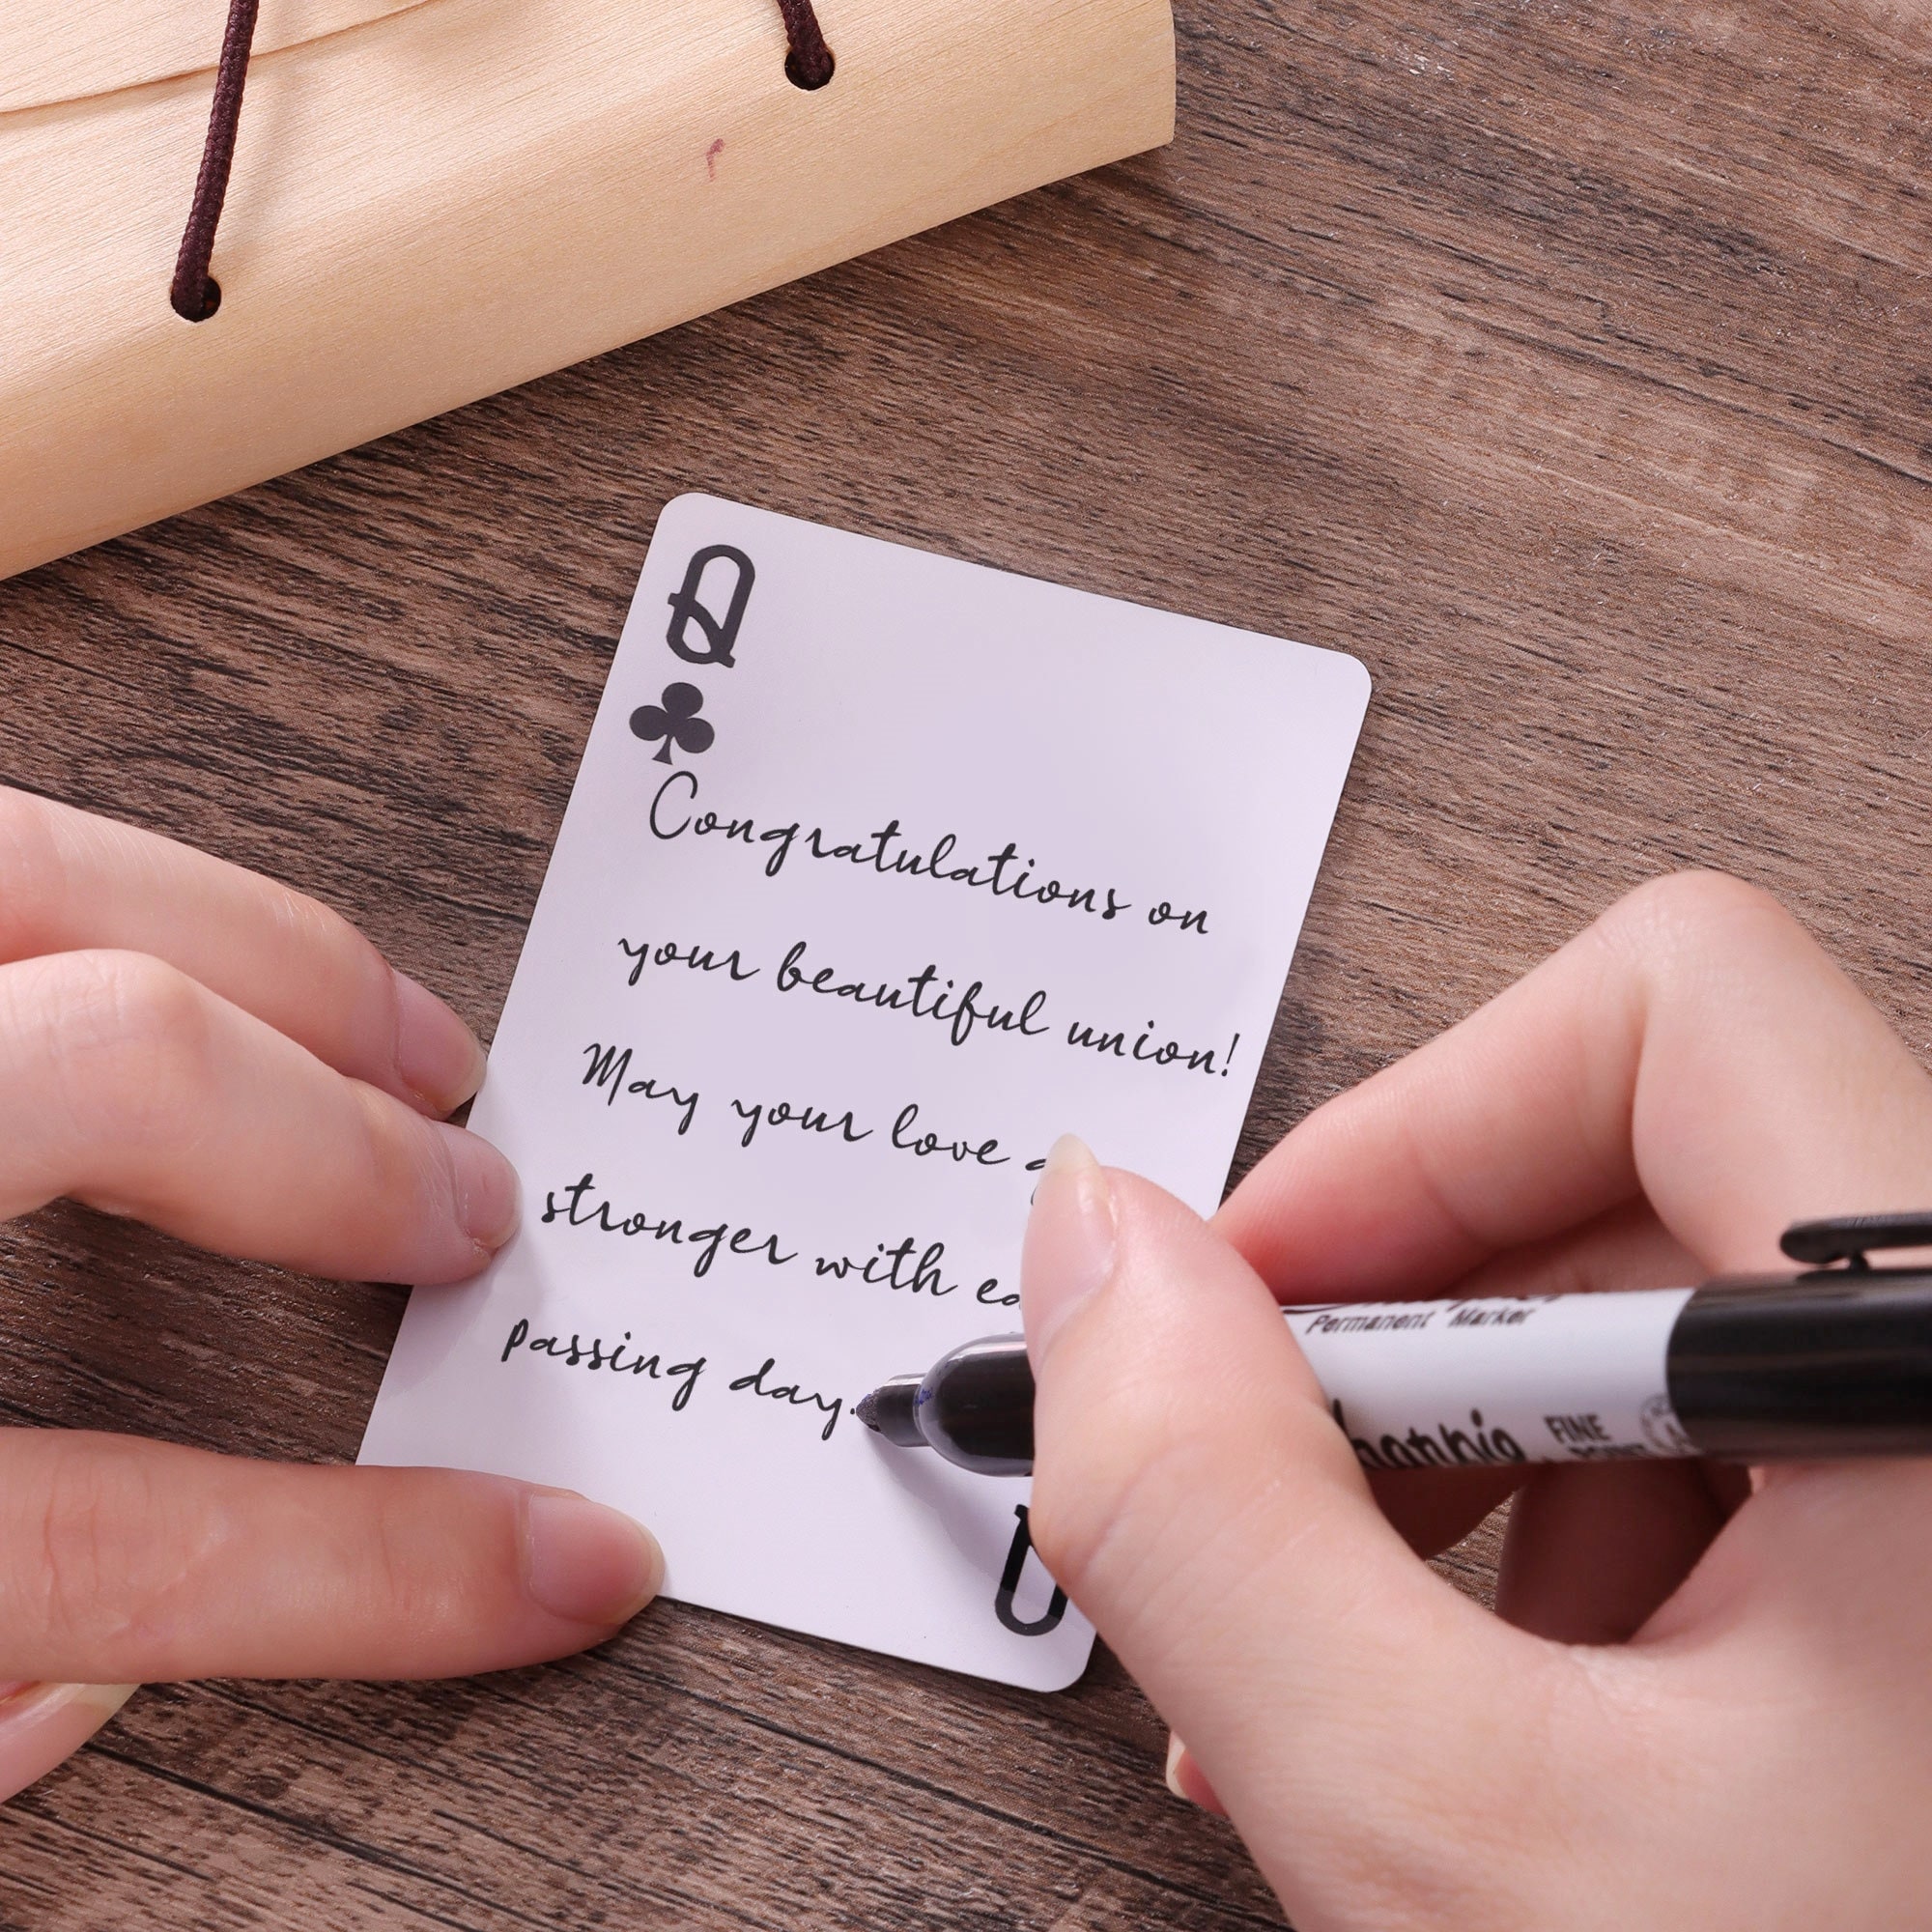 Q
Congratulations on
your beautiful union!
May your love
stronger with
passing day.
Permanent Marker
FINE
Q